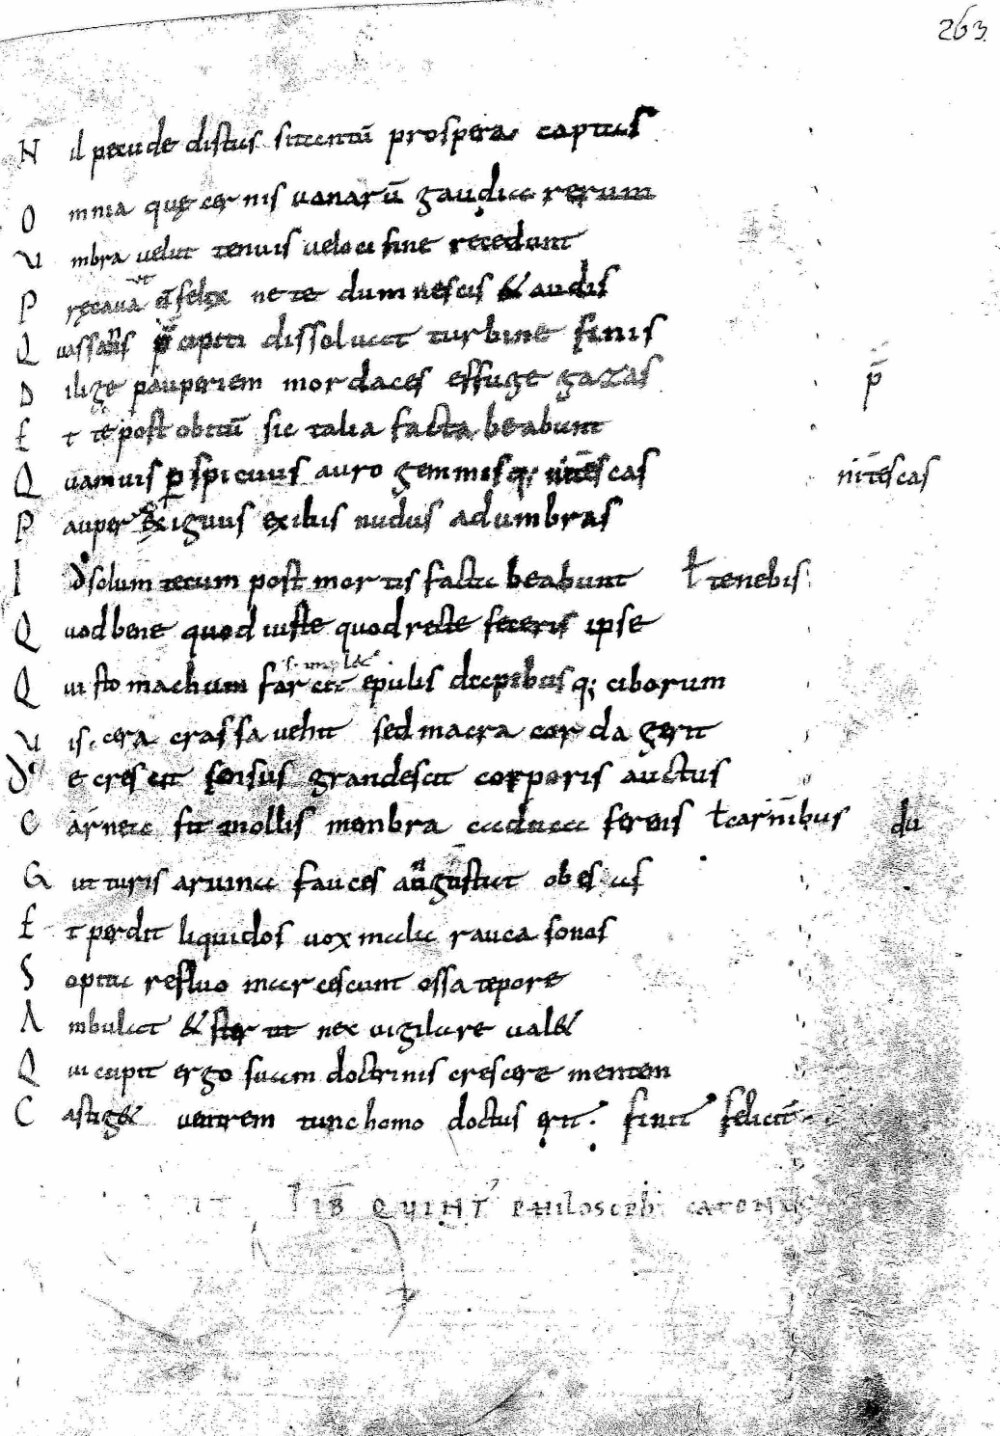 263
N il pecude distas si tantū prospera captas
O mnia quę cernis uanarū gaudia rerum
U mbra velut tenuis veloci fine recedunt
P ręcaua ē felix ne te dum nescis & audis
Q uassans p̄cipiti dissoluat turbine finis
D ilige pauperiem mordaces effuge gazas p̄
E t te post obitū sic talia facta beabunt
Q uamuis ꝑspicuus auro gemmisq; nitescas nitēscas
P auper & exiguus exibis nudus ad umbras
I d solum tecum post mortis facta beabunt ł tenebis
Q uod bene quod iuste quod recte feceris ipse
Q ui stomachum farcit epulis dapibusq; ciborum
U iscera crassa vehit sed macra corda gerit
D e crescit sensus grandescit corporis auctus
C arneis fit mollis membra caduca ferens ł carnibus du
G utturis aruina fauces angustat obesas
E t perdit liquidos uox mala rauca sonos
S opita refluo marcescunt ossa tepore
A mbulat & stertit nex uigilare ual&
Q ui cupit ergo suam doctrinis crescere mentem
C astig& ventrem tunc homo doctus erit. finit feliciť
LIB QUINT' PHILOSOPHI CATONIS